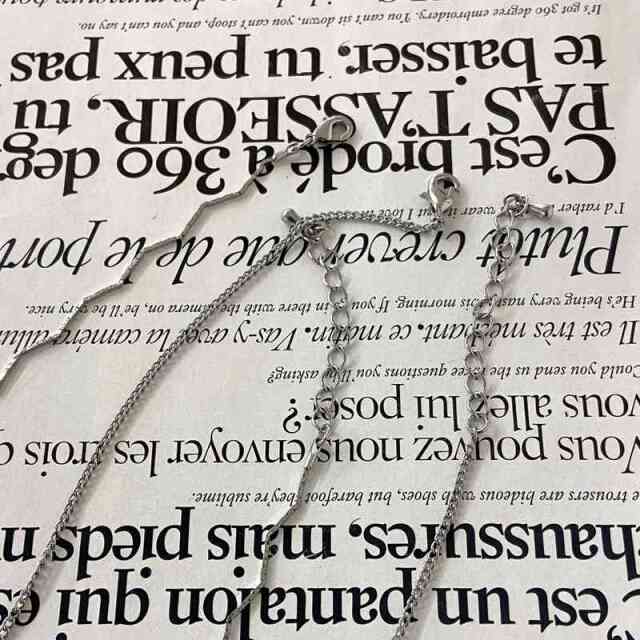 'est un pantalon qui es
haussures, mais pieds n
e trousers are hideous with shoes, but barefoot they're sublime.
Vous pouvez nous envoyer les trois q
vous allez lui poser?
Could you send us the three questions you'll be asking?
Il est très méchant, ce matin. Vas-y avec la caméra allum
He's being very nasty this morning. If you go in there with the camera on, he'll be very nice.
Plutôt crever que de le porte
I'd rather wear it but I love
C'est brodé à 360 degr
PAS T'ASSEOIR, tu
te baisser, tu peux pas
It's got 360 degree embroidery. You can't sit down, you can't stoop, and you can't say no.